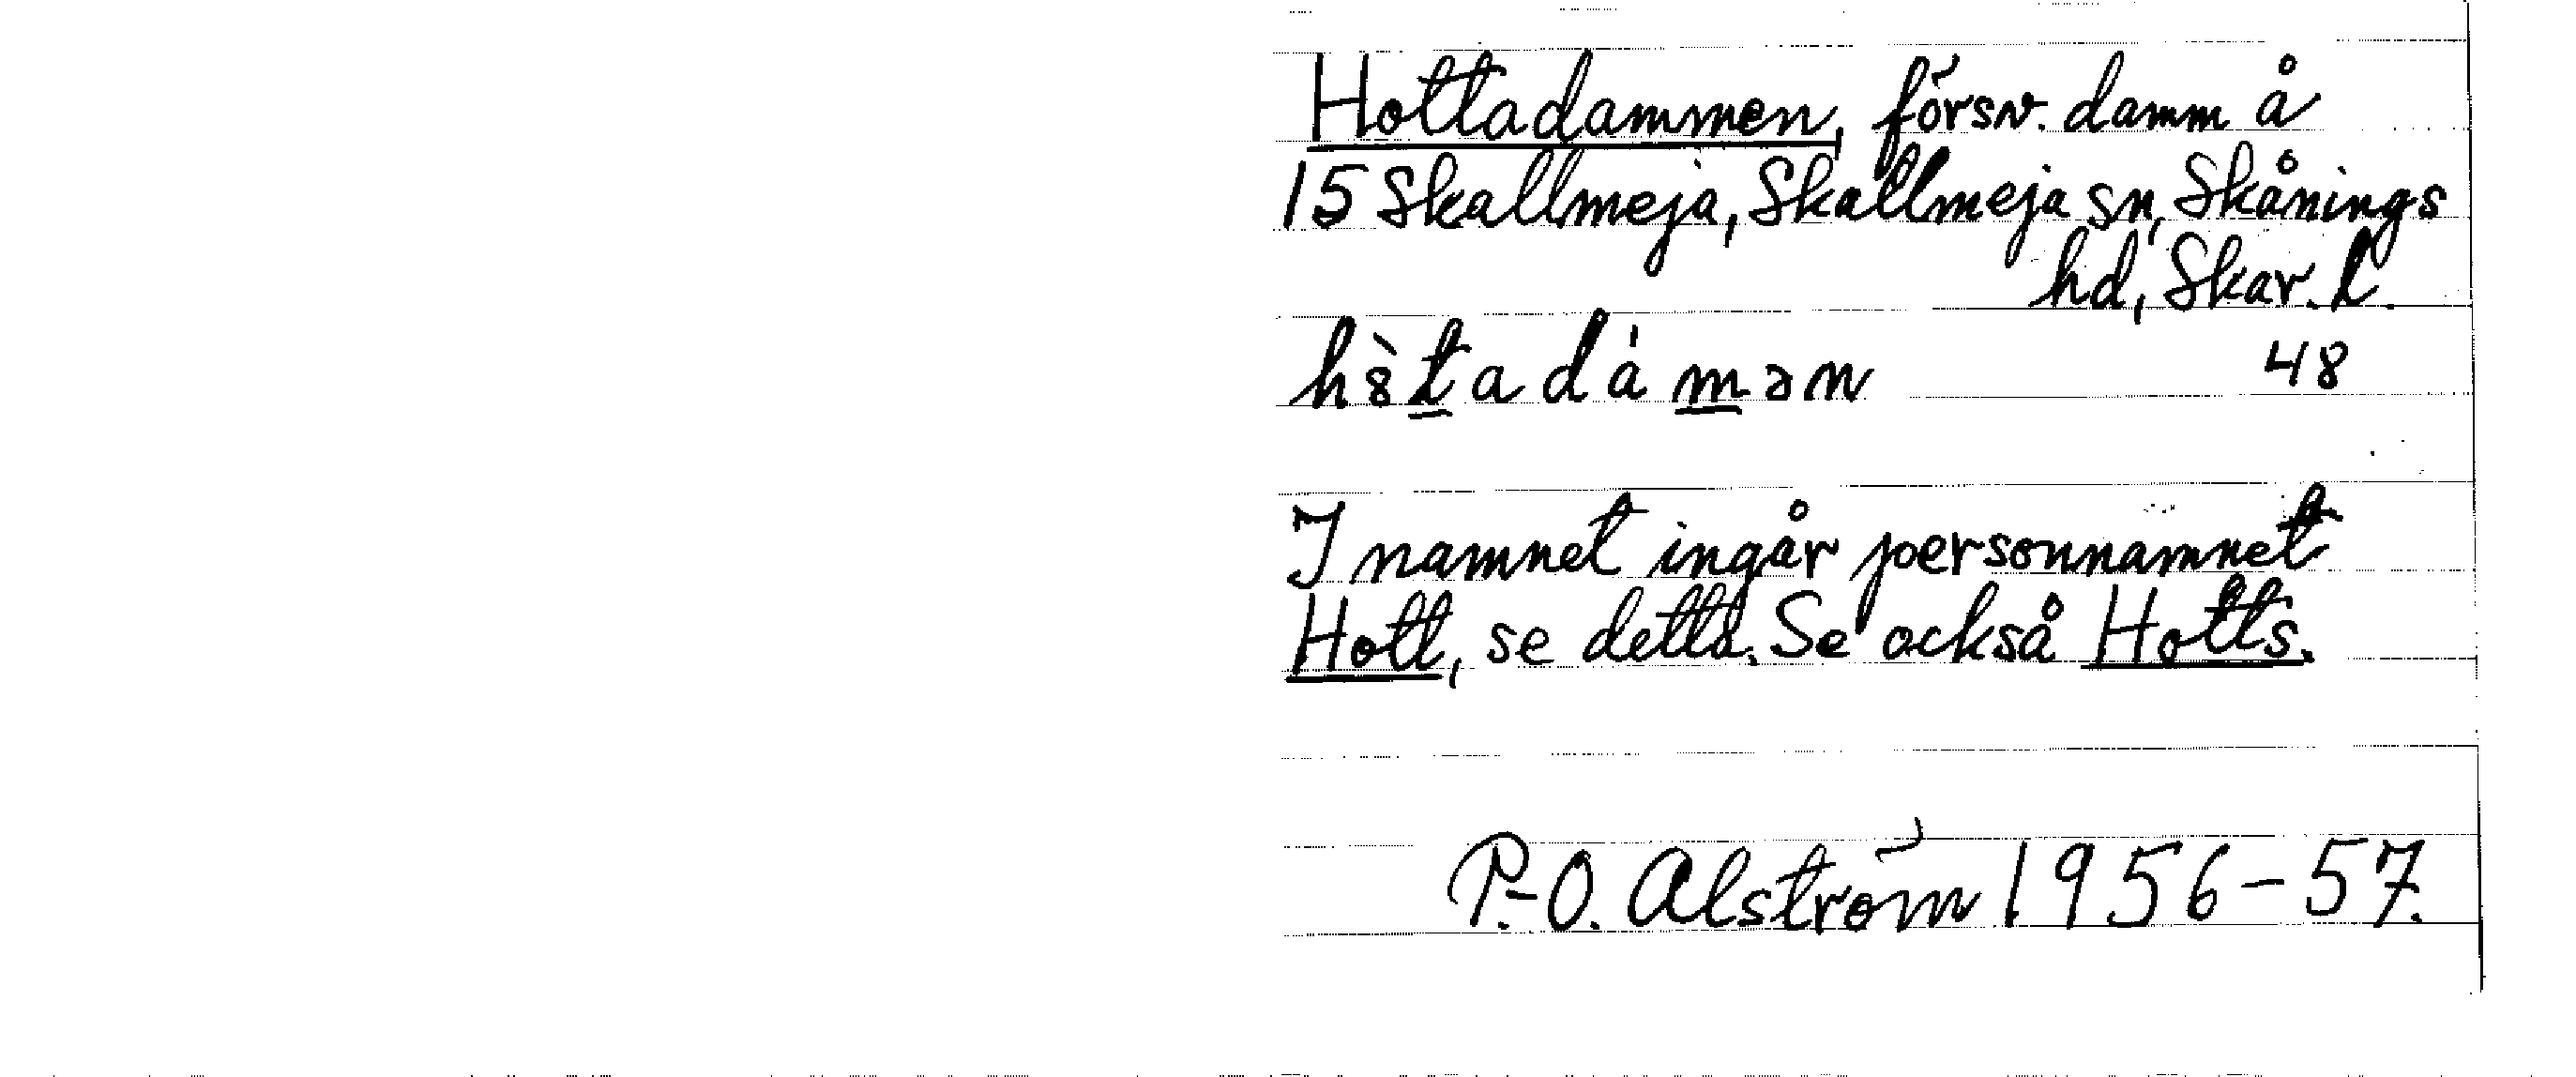 Hottadammen, försv. damm å
15 Skallmeja, Skallmeja sn, Skånings
hd, Skar. l.
hò̤tadámən 48
I namnet ingår personnamnet
Hott, se detta. Se också Hotts.
P.-O. Alström 1956-57.